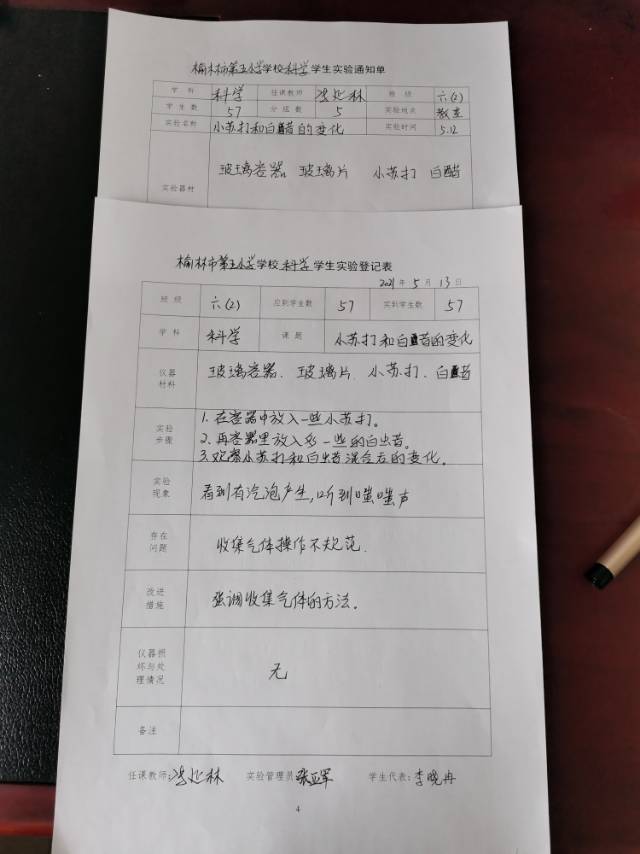 榆林市第五小学学校科学学生实验通知单
学科 科学 任课教师 班级 六(2)
学生数 57 分组数 5 实验地点 教室
实验名称 小苏打和白醋的变化 实验时间 5.12
实验器材 玻璃容器 玻璃片 小苏打 白醋
榆林市第五小学学校科学学生实验登记表
2021年5月13日
班级 六(2) 应到学生数 57 实到学生数 57
学科 科学 课题 小苏打和白醋的变化
仪器材料 玻璃容器、玻璃片、小苏打、白醋
实验步骤
1.在容器中放入一些小苏打。
2.再容器里放入多一些的白醋。
3.观察小苏打和白醋混合后的变化。
实验现象 看到有汽泡产生,听到嗤嗤声
存在问题 收集气体操作不规范.
改进措施 强调收集气体的方法。
仪器损坏与处理情况 无
备注
任课教师: 实验管理员 张亚军 学生代表:李晓冉
4